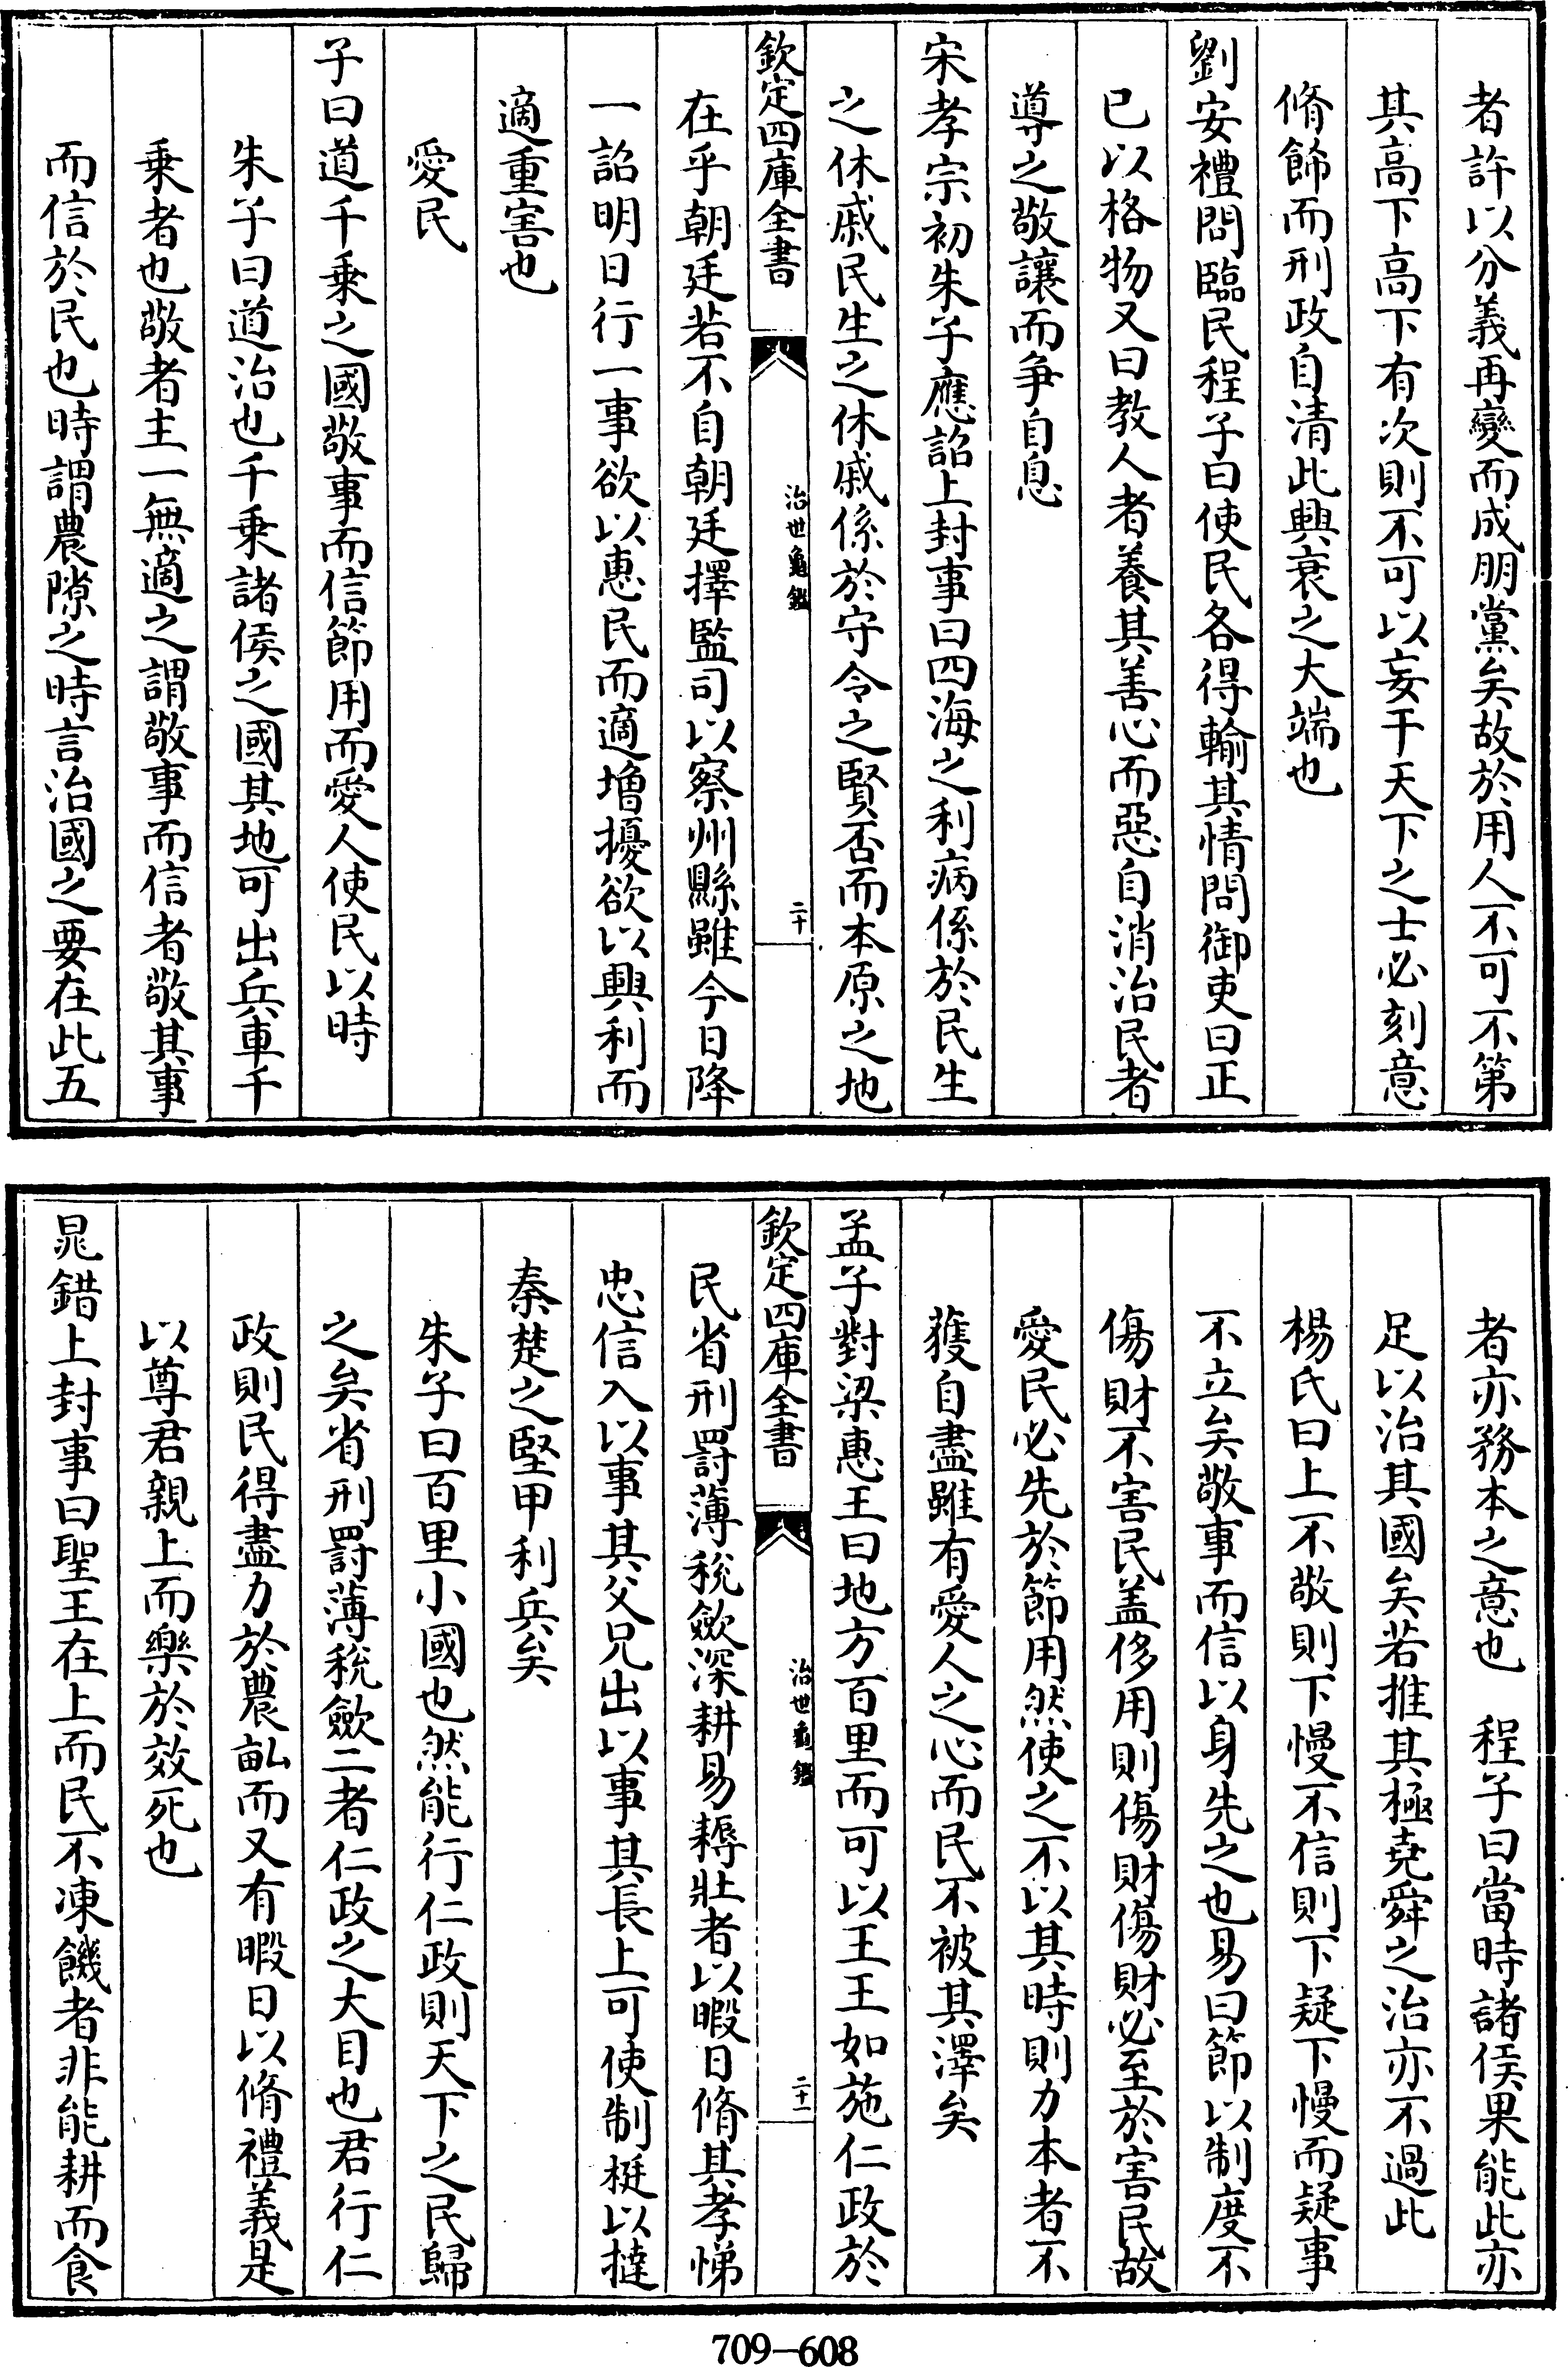 者許以分義再變而成朋黨矣故於用人不可不第
其高下高下有次則不可以妄干天下之士必刻意
脩飾而刑政自清此興衰之大端也
劉安禮問臨民程子曰使民各得輸其情問御吏曰正
已以格物又曰教人者養其善心而惡自消治民者
導之敬讓而爭自息
宋孝宗初朱子應詔上封事曰四海之利病係於民生
之休戚民生之休戚係於守令之賢否而本原之地
欽定四庫全書
治世龜鑑
二十
在乎朝廷若不自朝廷擇監司以察州縣雖今日降
一詔明日行一事欲以惠民而適增擾欲以興利而
適重害也
愛民
子曰道千乗之國敬事而信節用而愛人使民以時
朱子曰道治也千乗諸侯之國其地可出兵車千
乗者也敬者主一無適之謂敬事而信者敬其事
而信於民也時謂農隙之時言治國之要在此五
者亦務本之意也　程子曰當時諸侯果能此亦
足以治其國矣若推其極堯舜之治亦不過此
楊氏曰上不敬則下慢不信則下疑下慢而疑事
不立矣敬事而信以身先之也易曰節以制度不
傷財不害民盖侈用則傷財傷財必至於害民故
愛民必先於節用然使之不以其時則力本者不
獲自盡雖有愛人之心而民不被其澤矣
孟子對梁惠王曰地方百里而可以王王如施仁政於
欽定四庫全書
治世龜鑑
二十一
民省刑罰薄稅斂深耕易耨壯者以暇日脩其孝悌
忠信入以事其父兄出以事其長上可使制梃以撻
秦楚之堅甲利兵矣
朱子曰百里小國也然能行仁政則天下之民歸
之矣省刑罰薄稅斂二者仁政之大目也君行仁
政則民得盡力於農畝而又有暇日以脩禮義是
以尊君親上而樂於效死也
晁錯上封事曰聖王在上而民不凍饑者非能耕而食
709-608